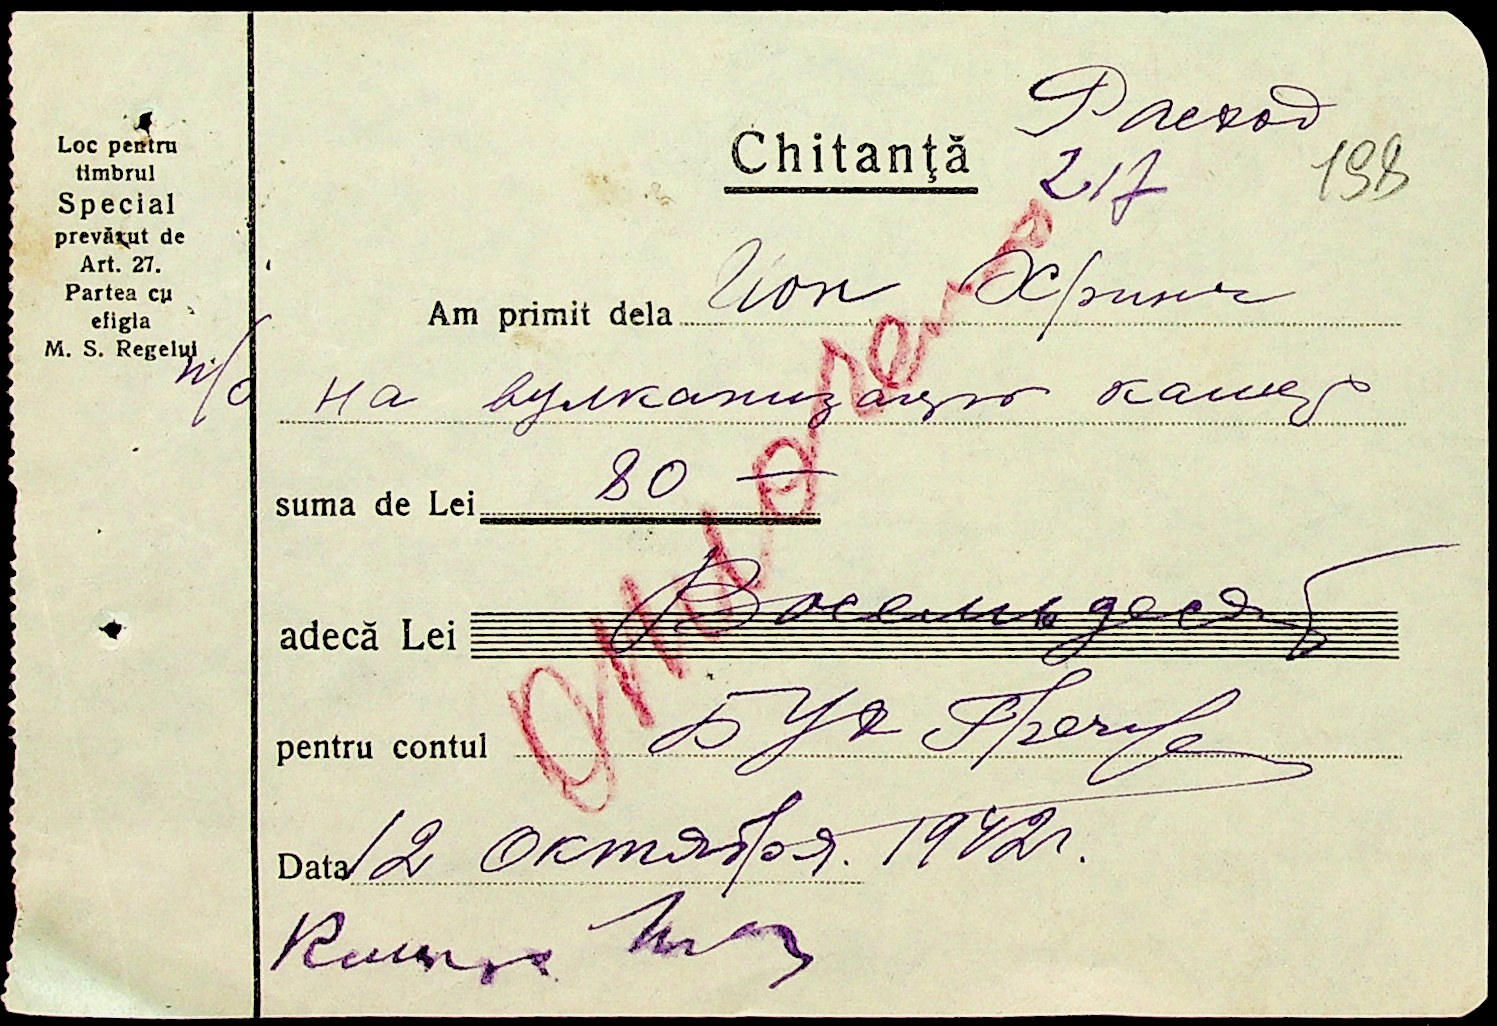 Loc pentru
timbrul
Special
prevăzut de
Art. 27.
Partea cu
efigia
M. S. Regelui
Расход
Chitanţă
217
198
Am primit dela Йон
п/о на вулканизацию камер
suma de Lei 80 —
adecă Lei Восемьдесят
pentru contul Бух
Data 12 октября 1942 г.